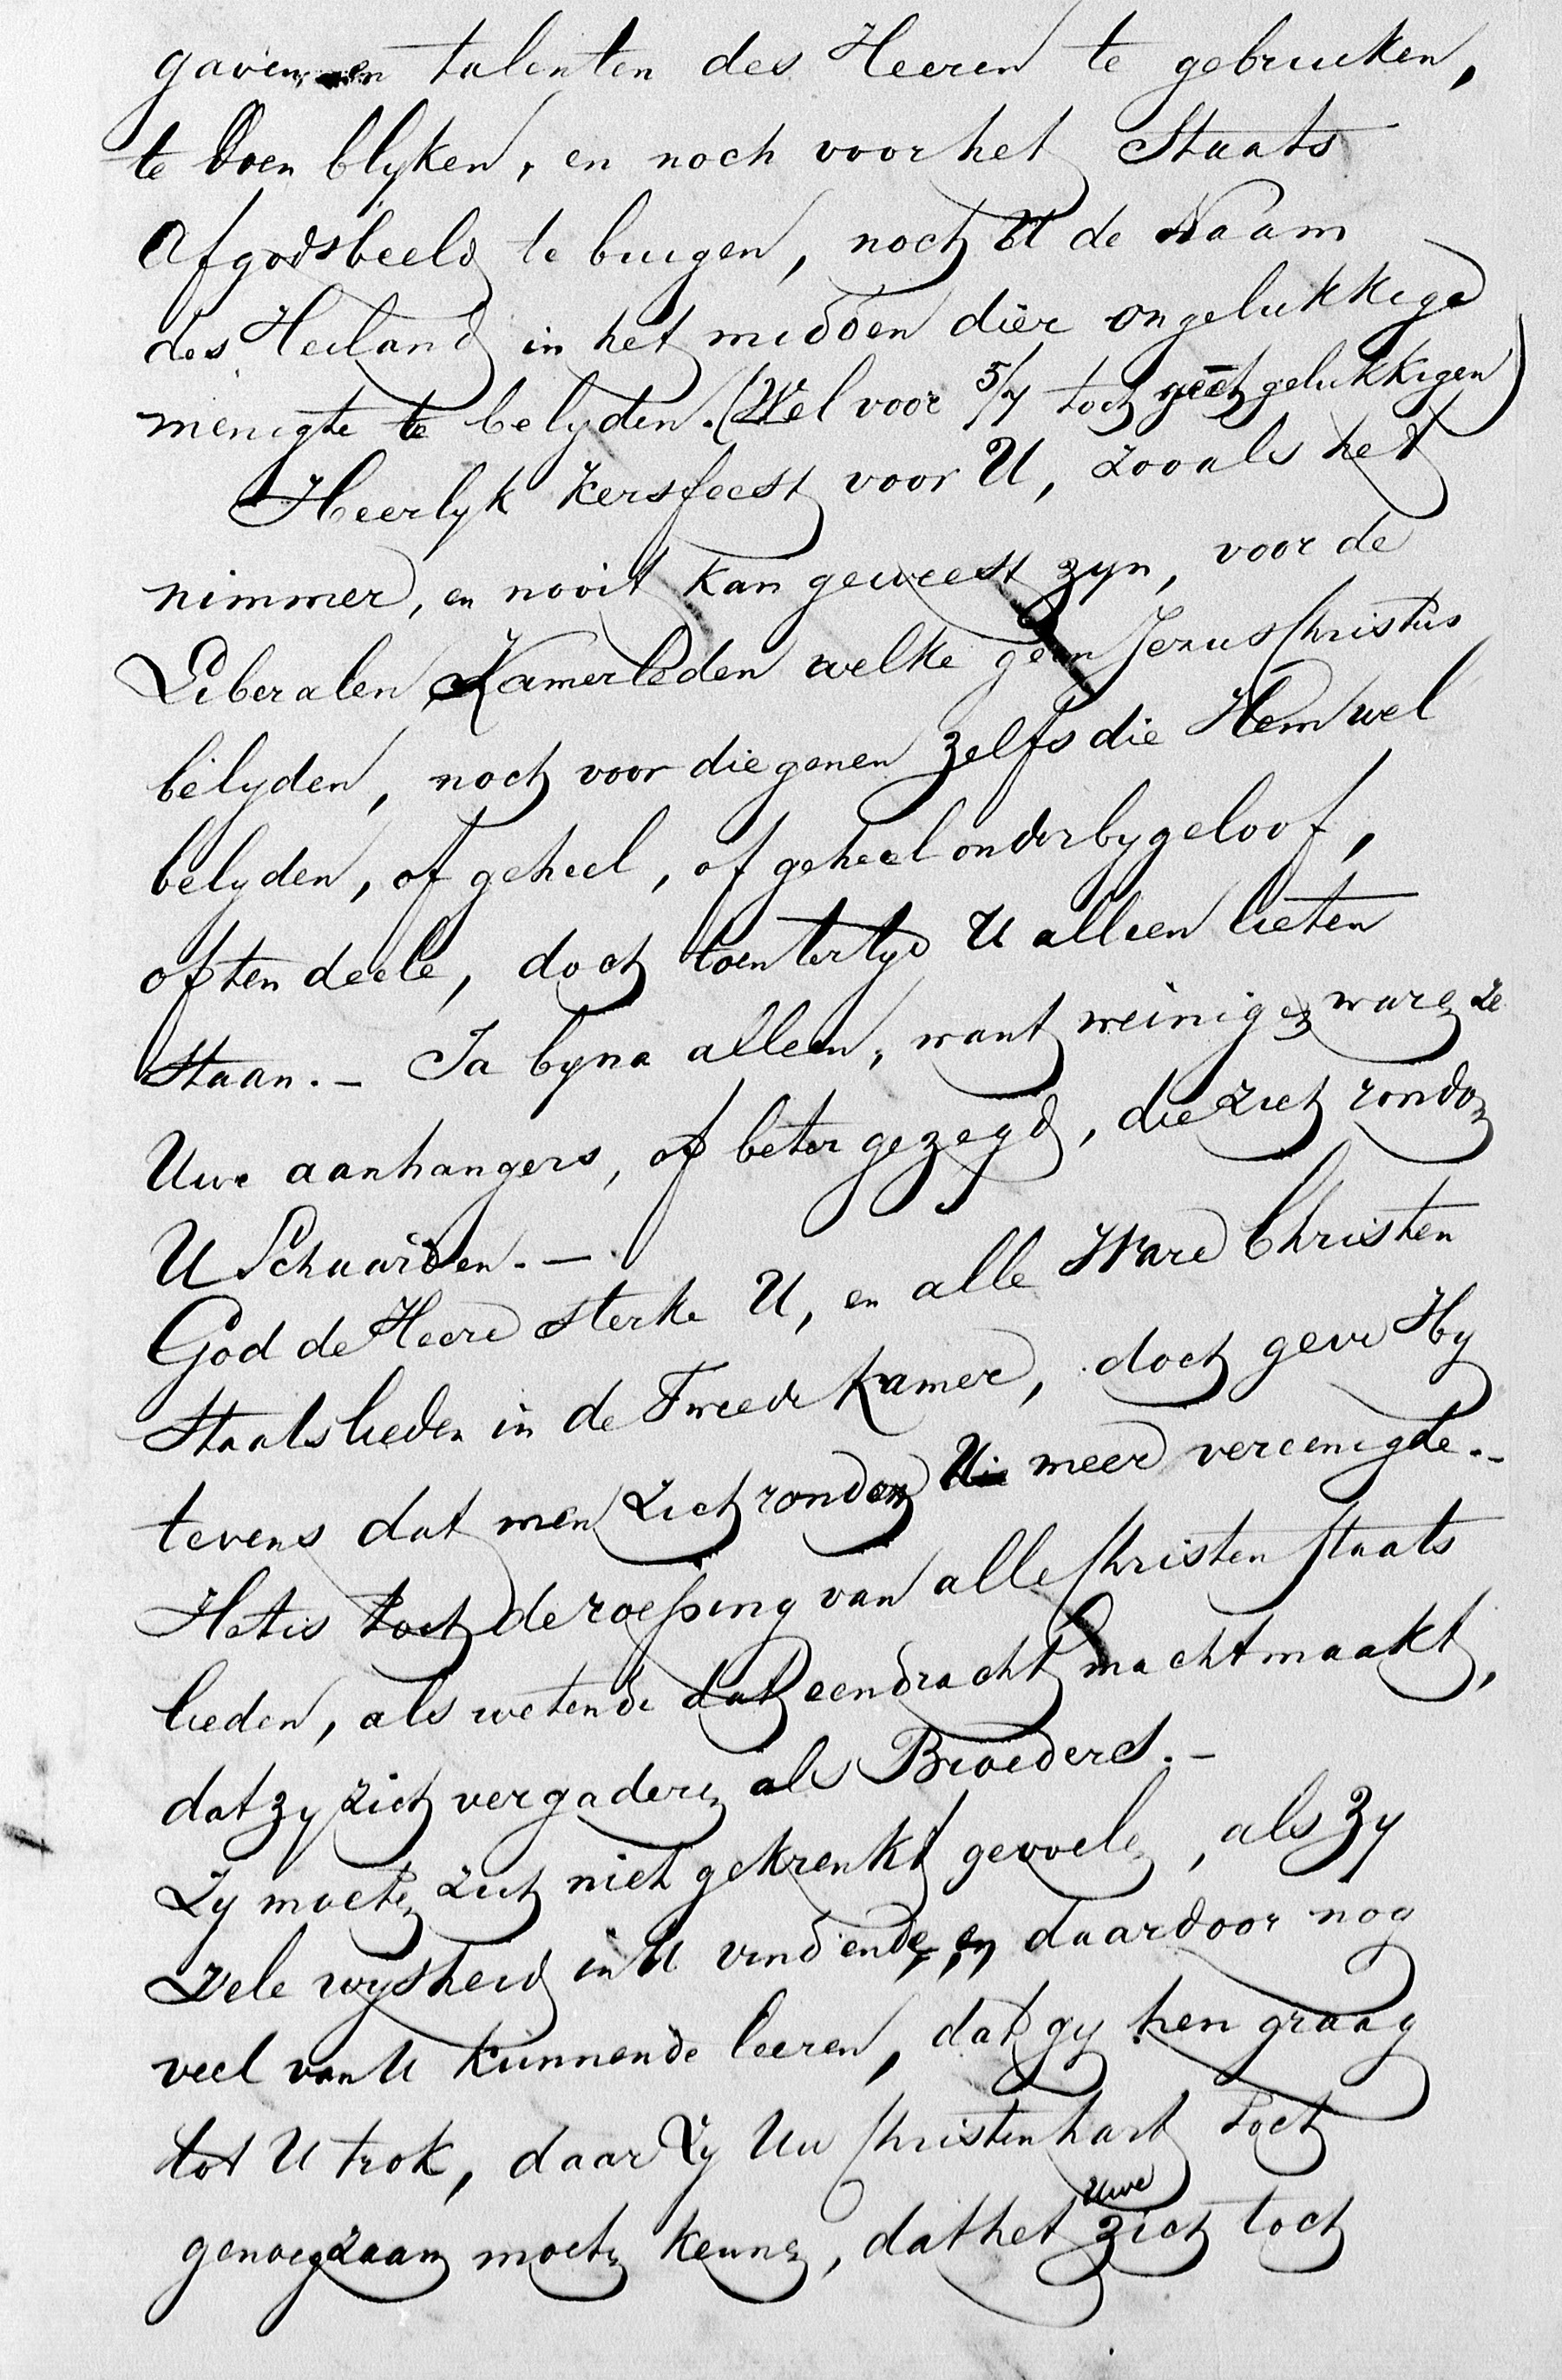 gaven en talenten des Heeren te gebruiken,
te doen blyken, en noch voor het Staats
Afgodsbeeld te buigen, noch de Naam
des Heiland in het midden diër ongelukkige
menigte te belyden. (Wel voor 5/7 toch geen gelukkigen)
Heerlyk Kersfeest voor U, zooals het
nimmer, en nooit kan geweest zyn, voor de
Liberalen Kamerleden welke geen Jezus Christus
belyden, noch voor die genen zelfs die Hem wel
belyden, of geheel, of geheel onder bygeloof,
of ten deele, doch toentertyd U alleen lieten
Staan. – Ja byna alleen, want weinigen waren ze
Uwe aanhangers, of beter gezegd, die zich rondom
U Schaarden. –
God de Heere Sterke U, en alle Ware Christen
Staatslieden in de Tweede Kamer, doch geve Hy
tevens dat men zich rondom U meer vereenigde. –
Het is toch de roeping van alle Christen Staats
lieden, als wetende dat eendracht macht maakt,
dat zy zich vergaderen als Broeders. –
Zy moeten zich niet gekrenkt gevoelen, als zy
vele wysheid in U vindende, en daardoor nog
veel van U kunnende leeren, dat gy hen graag
tot U trok, daar Zy Uw Christenhart toch
genoegzaam moeten kennen, dat het Uwe zich toch